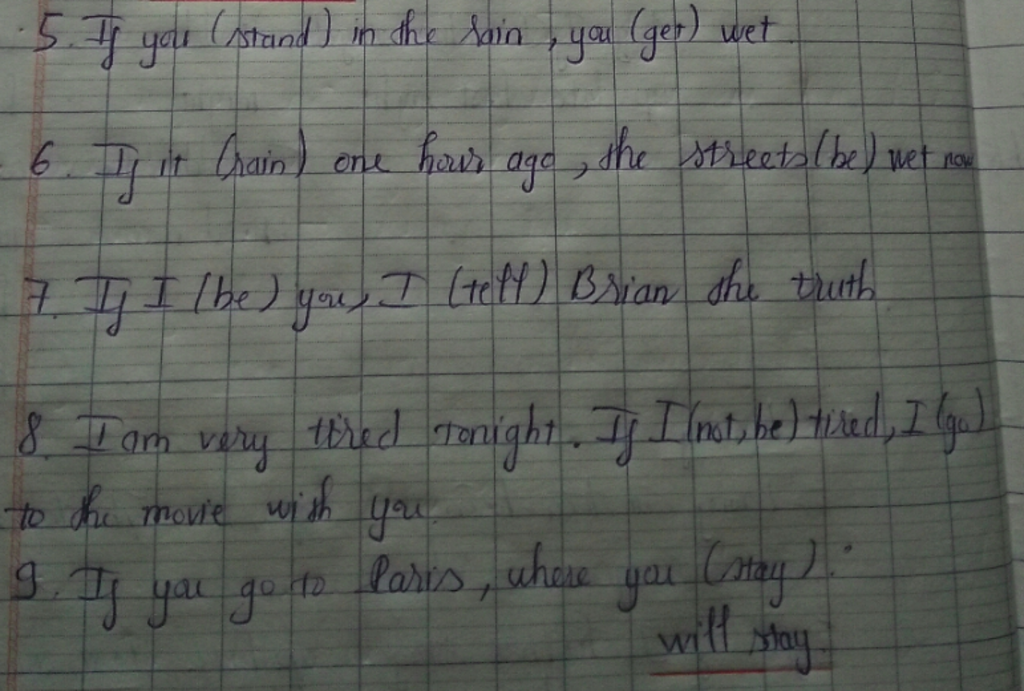 5. If you (stand) in the rain, you (get) wet
6. If it (rain) one hour ago, the streets (be) wet now
7. If I (be) you, I (tell) Brian the truth
8. I am very tired tonight. If I (not, be) tired, I (go)
to the movie with you.
9. If you go to Paris, where you (stay).
will stay.